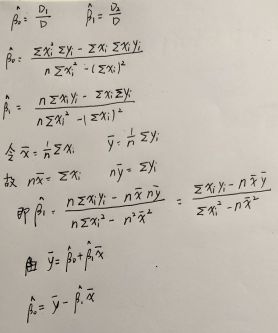 β̂₀ = D₁/D    β̂₁ = D₂/D
β̂₀ = (Σxᵢ² Σyᵢ - Σxᵢ Σxᵢyᵢ) / (nΣxᵢ² - (Σxᵢ)²)
β̂₁ = (nΣxᵢyᵢ - Σxᵢ Σyᵢ) / (nΣxᵢ² - (Σxᵢ)²)
令 x̄ = 1/n Σxᵢ    ȳ = 1/n Σyᵢ
故 nx̄ = Σxᵢ    nȳ = Σyᵢ
即 β̂₁ = (nΣxᵢyᵢ - nx̄ nȳ) / (nΣxᵢ² - n²x̄²) = (Σxᵢyᵢ - nx̄ȳ) / (Σxᵢ² - nx̄²)
由 ȳ = β̂₀ + β̂₁x̄
β̂₀ = ȳ - β̂₁x̄